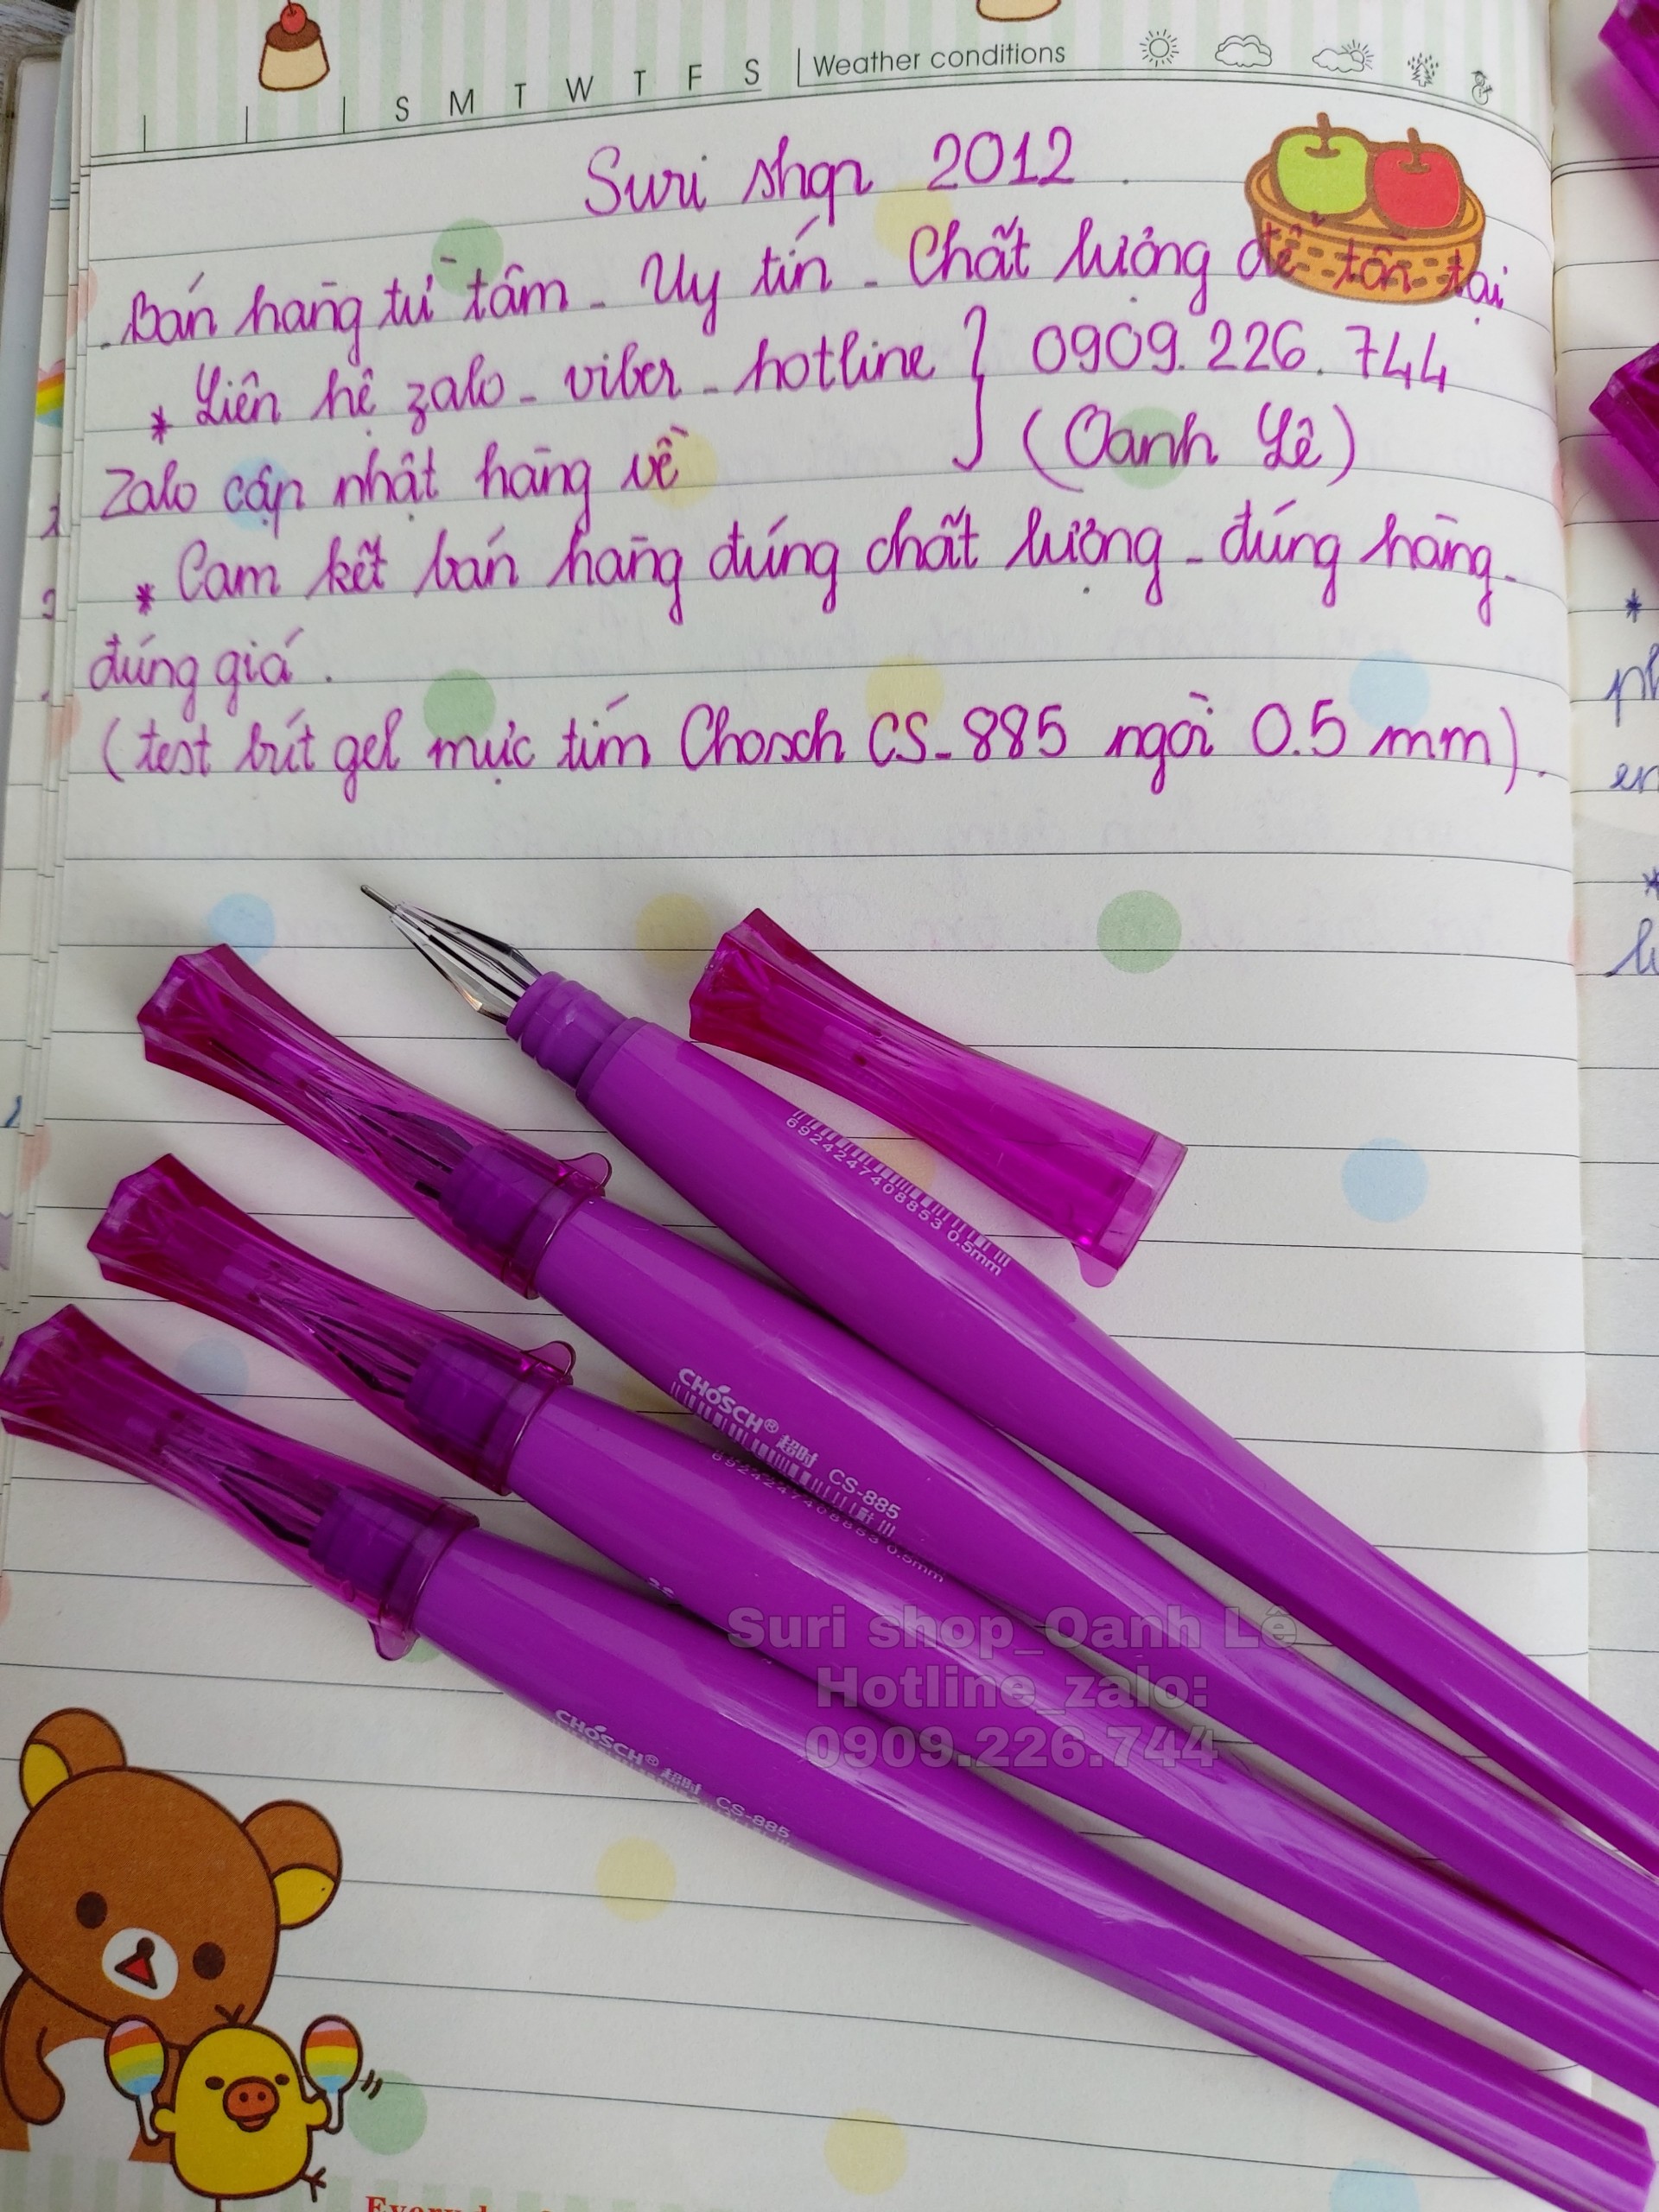 S M T W T F S Weather conditions
Suri shop 2012.
. Bán hàng từ tâm - Uy tín - Chất lượng để tồn tại
* Liên hệ zalo - viber - hotline } 0909.226.744
(Oanh Lê)
Zalo cập nhật hàng về
* Cam kết bán hàng đúng chất lượng - đúng hàng -
đúng giá.
(test bút gel mực tím Chosch CS-885 ngòi 0.5 mm).
6924247408853 0.5mm
CHOSCH® 超时 CS-885
6924247408853 0.5mm
CHOSCH® 超时 CS-885
Suri shop_Oanh Lê
Hotline_zalo:
0909.226.744